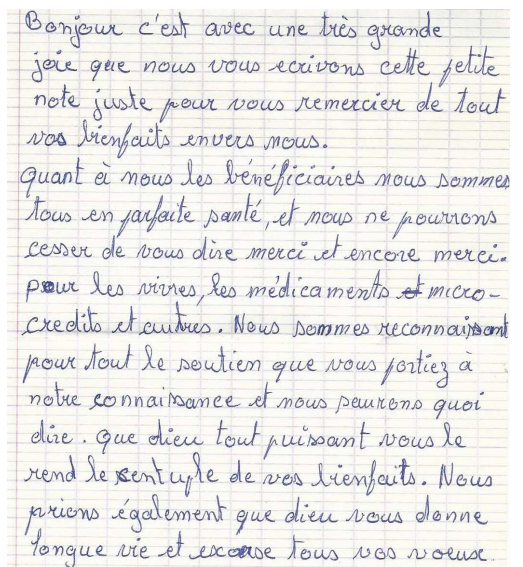 Bonjour c'est avec une très grande
joie que nous vous ecrivons cette petite
note juste pour vous remercier de tout
vos bienfaits envers nous.
quant à nous les bénéficiaires nous sommes
tous en parfaite santé, et nous ne pourrons
cesser de vous dire merci et encore merci.
pour les vivres, les médicaments et micro-
credits et autres. Nous sommes reconnaissant
pour tout le soutien que vous portiez à
notre connaissance et nous saurons quoi
dire. que dieu tout puissant vous le
rend le sentuple de vos bienfaits. Nous
prions également que dieu vous donne
longue vie et exause tous vos voeux.